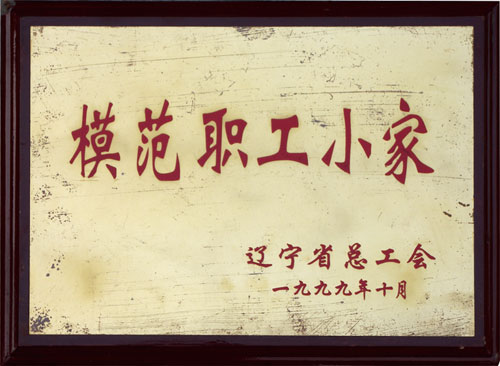 模范职工小家
辽宁省总工会
一九九九年十月